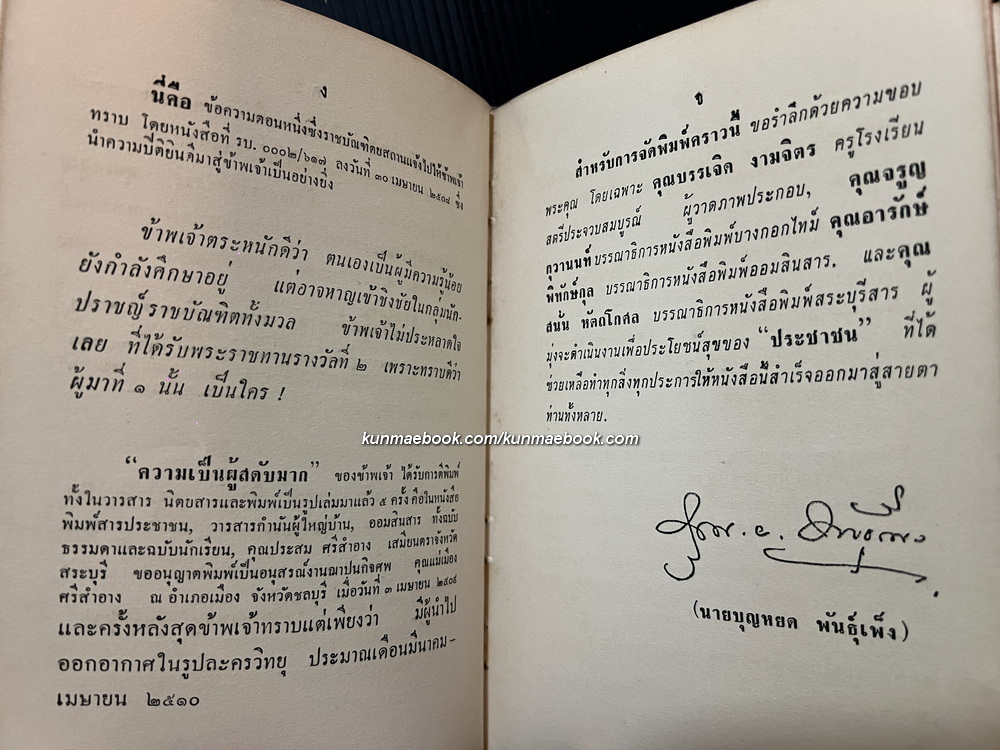 ง
นี่คือ ข้อความตอนหนึ่งซึ่งราชบัณฑิตยสถานแจ้งไปให้ข้าพเจ้า
ทราบ โดยหนังสือที่ รบ. ๐๐๐๒/๖๑๗ ลงวันที่ ๓๐ เมษายน ๒๕๐๘ ซึ่ง
นำความปิติยินดีมาสู่ข้าพเจ้าเป็นอย่างยิ่ง
ข้าพเจ้าตระหนักดีว่า ตนเองเป็นผู้มีความรู้น้อย
ยังกำลังศึกษาอยู่ แต่อาจหาญเข้าชิงชัยในกลุ่มนัก-
ปราชญ์ราชบัณฑิตทั้งมวล ข้าพเจ้าไม่ประหลาดใจ
เลย ที่ได้รับพระราชทานรางวัลที่ ๒ เพราะทราบดีว่า
ผู้มาที่ ๑ นั้น เป็นใคร !
“ความเป็นผู้สดับมาก” ของข้าพเจ้า ได้รับการตีพิมพ์
ทั้งในวารสาร นิตยสารและพิมพ์เป็นรูปเล่มมาแล้ว ๕ ครั้ง คือในหนังสือ
พิมพ์สารประชาชน, วารสารกำนันผู้ใหญ่บ้าน, ออมสินสาร ทั้งฉบับ
ธรรมดาและฉบับนักเรียน, คุณประสม ศรีสำอาง เสมียนตราจังหวัด
สระบุรี ขออนุญาตพิมพ์เป็นอนุสรณ์งานฌาปนกิจศพ คุณแม่เมือง
ศรีสำอาง ณ อำเภอเมือง จังหวัดชลบุรี เมื่อวันที่ ๓ เมษายน ๒๕๐๙
และครั้งหลังสุดข้าพเจ้าทราบแต่เพียงว่า มีผู้นำไป
ออกอากาศในรูปละครวิทยุ ประมาณเดือนมีนาคม-
เมษายน ๒๕๑๐
จ
สำหรับการจัดพิมพ์คราวนี้ ขอรำลึกด้วยความขอบ
พระคุณ โดยเฉพาะ คุณบรรเจิด งามจิตร ครูโรงเรียน
สตรีประจวบสมบูรณ์ ผู้วาดภาพประกอบ, คุณจรูญ
กุวานนท์ บรรณาธิการหนังสือพิมพ์บางกอกไทม์ คุณอารักษ์
พิทักษ์กุล บรรณาธิการหนังสือพิมพ์ออมสินสาร. และคุณ
สนั่น หัตถโกศล บรรณาธิการหนังสือพิมพ์สระบุรีสาร ผู้
มุ่งจะดำเนินงานเพื่อประโยชน์สุขของ “ประชาชน” ที่ได้
ช่วยเหลือทำทุกสิ่งทุกประการให้หนังสือนี้สำเร็จออกมาสู่สายตา
ท่านทั้งหลาย.
(นายบุญหยด พันธุ์เพ็ง)
kunmaebook.com/kunmaebook.com